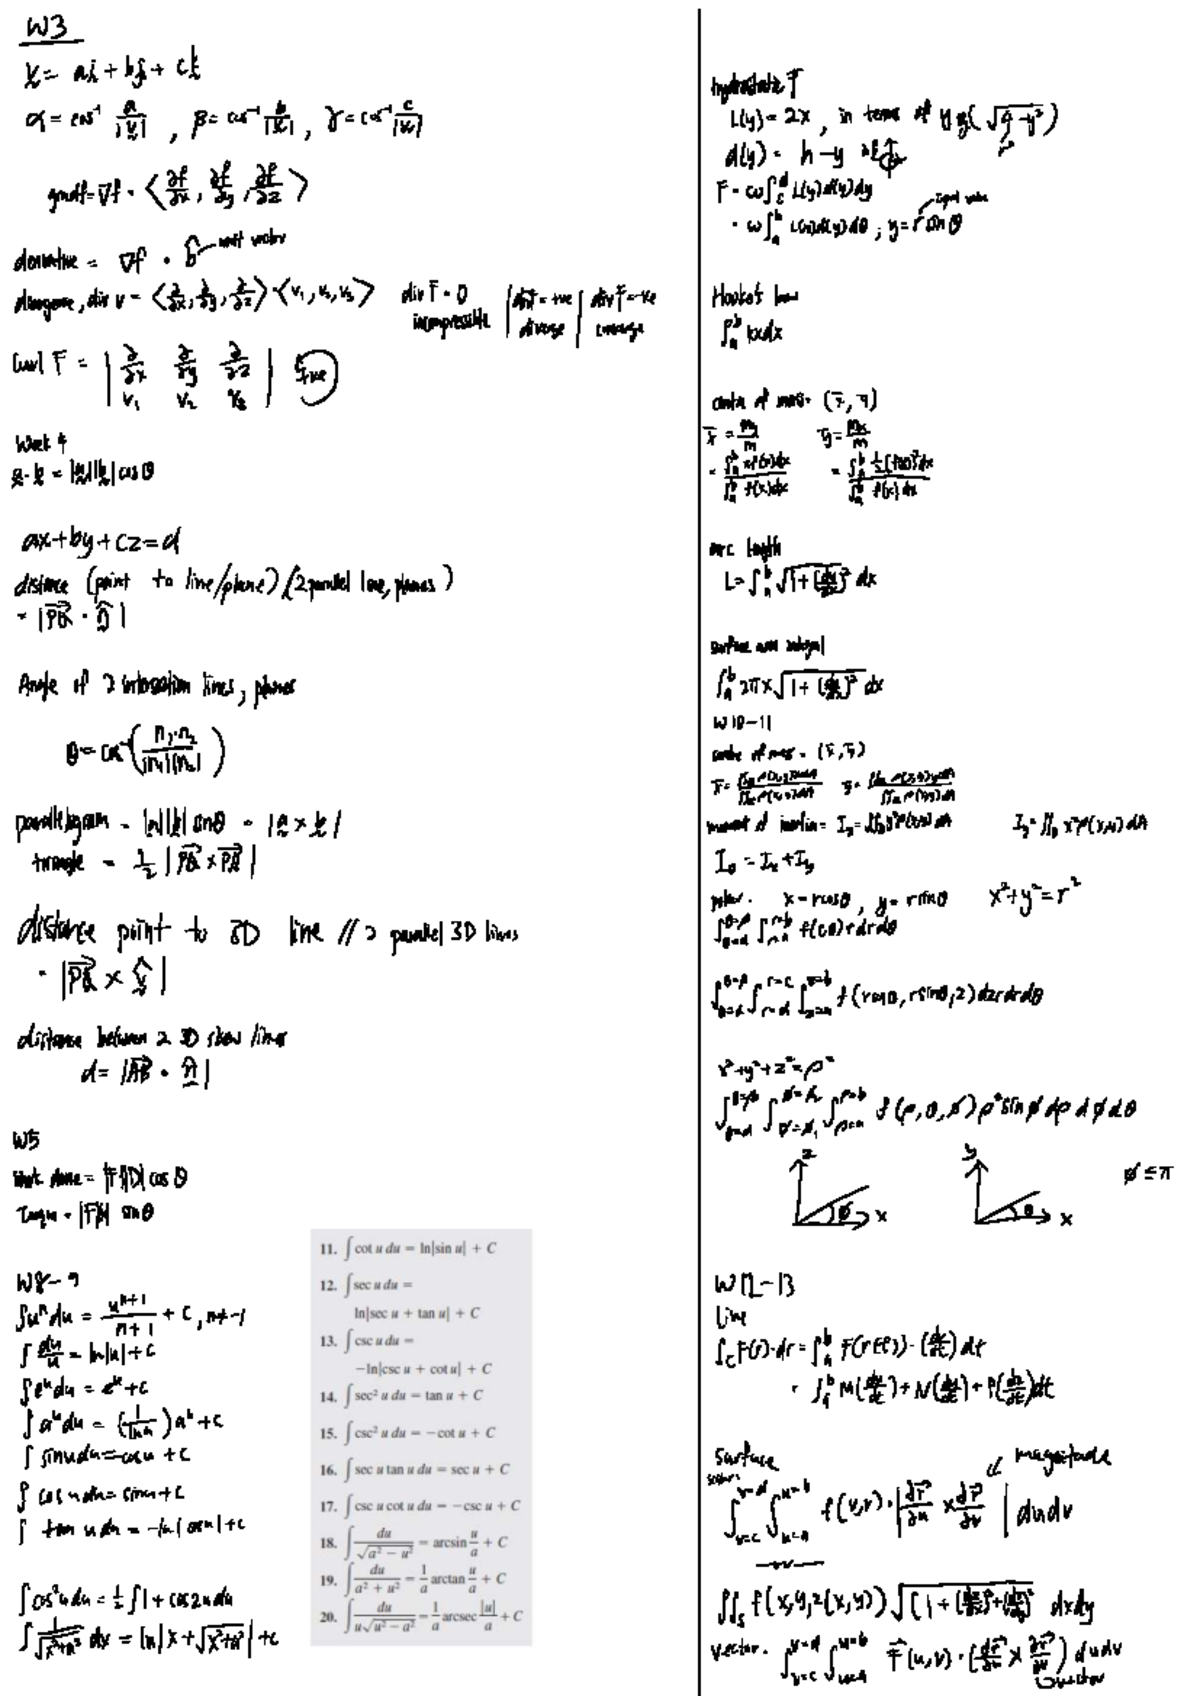 W3
v = ai + bj + ck
α = cos⁻¹ a/|v| , β = cos⁻¹ b/|v| , γ = cos⁻¹ c/|v|
gradf = ∇f = <∂f/∂x, ∂f/∂y, ∂f/∂z>
derivative = ∇f · b̂ unit vector
divergence, div v = <∂/∂x, ∂/∂y, ∂/∂z> · <v₁, v₂, v₃> div F = 0 incompressible | div F = +ve diverge | div F = -ve converge
Curl F = | ∂/∂x ∂/∂y ∂/∂z |
v₁ v₂ v₃
+ve
Week 4
a · b = |a||b| cos θ
ax + by + cz = d
distance (point to line/plane) / (2 parallel line, planes)
= |PQ · n̂|
Angle of 2 intersection lines, planes
θ = cos⁻¹(n₁·n₂ / |n₁||n₂|)
parallelogram = |a||b| sinθ = |a × b|
triangle = 1/2 |PQ × PR|
distance point to 3D line // 2 parallel 3D lines
= |PQ × v̂|
distance between 2 3D skew lines
d = |AB · n̂|
W5
Work done = |F||D| cos θ
Torque = |F||r| sin θ
W8-9
∫uⁿ du = uⁿ⁺¹/(n+1) + C, n≠-1
∫ du/u = ln|u| + C
∫eᵘ du = eᵘ + C
∫aᵘ du = (1/ln a) aᵘ + C
∫ sin u du = -cos u + C
∫ cos u du = sin u + C
∫ tan u du = -ln|cos u| + C
∫cos²u du = 1/2 ∫1 + cos2u du
∫ 1/√(x²+a²) dx = ln|x + √(x²+a²)| + C
11. ∫ cot u du = ln|sin u| + C
12. ∫ sec u du =
ln|sec u + tan u| + C
13. ∫ csc u du =
−ln|csc u + cot u| + C
14. ∫ sec² u du = tan u + C
15. ∫ csc² u du = −cot u + C
16. ∫ sec u tan u du = sec u + C
17. ∫ csc u cot u du = −csc u + C
18. ∫ du/√(a² − u²) = arcsin u/a + C
19. ∫ du/(a² + u²) = 1/a arctan u/a + C
20. ∫ du/(u√(u² − a²)) = 1/a arcsec |u|/a + C
hydrostatic F
L(y) = 2x, in terms of y (√(9-y²))
d(y) = h - y
F = ω∫ L(y)d(y)dy
y = r sin θ
Hooke's law
∫ₐᵇ kx dx
centre of mass = (x̄, ȳ)
x̄ = My/m ȳ = Mx/m
= ∫ₐᵇ x f(x)dx / ∫ₐᵇ f(x)dx = ∫ₐᵇ 1/2[f(x)]²dx / ∫ₐᵇ f(x)dx
arc length
L = ∫ₐᵇ √(1 + (dy/dx)²) dx
surface area integral
∫ₐᵇ 2πx √(1 + (dy/dx)²) dx
W10-11
centre of mass = (x̄, ȳ)
I₀ = Iₓ + Iᵧ
polar. x = rcosθ, y = rsinθ x² + y² = r²
f(rcosθ, rsinθ, z) dz r dr dθ
x² + y² + z² = ρ²
f(ρ, θ, φ) ρ² sin φ dρ dφ dθ
z φ x
y θ x
φ ≤ π
W12-13
Line
∫c F(r)·dr = ∫ₐᵇ F(r(t))·(dr/dt) dt
= ∫ₐᵇ M(dx/dt) + N(dy/dt) + P(dz/dt) dt
Surface magnitude
scalar ∫v=c v=d ∫u=a u=b f(u,v) · |∂r/∂u × ∂r/∂v| du dv
or
∬s f(x, y, z(x, y)) √(1 + (dz/dx)² + (dz/dy)²) dxdy
vector. ∫v=c v=d ∫u=a u=b F(u,v) · (∂r/∂u × ∂r/∂v) du dv
vector